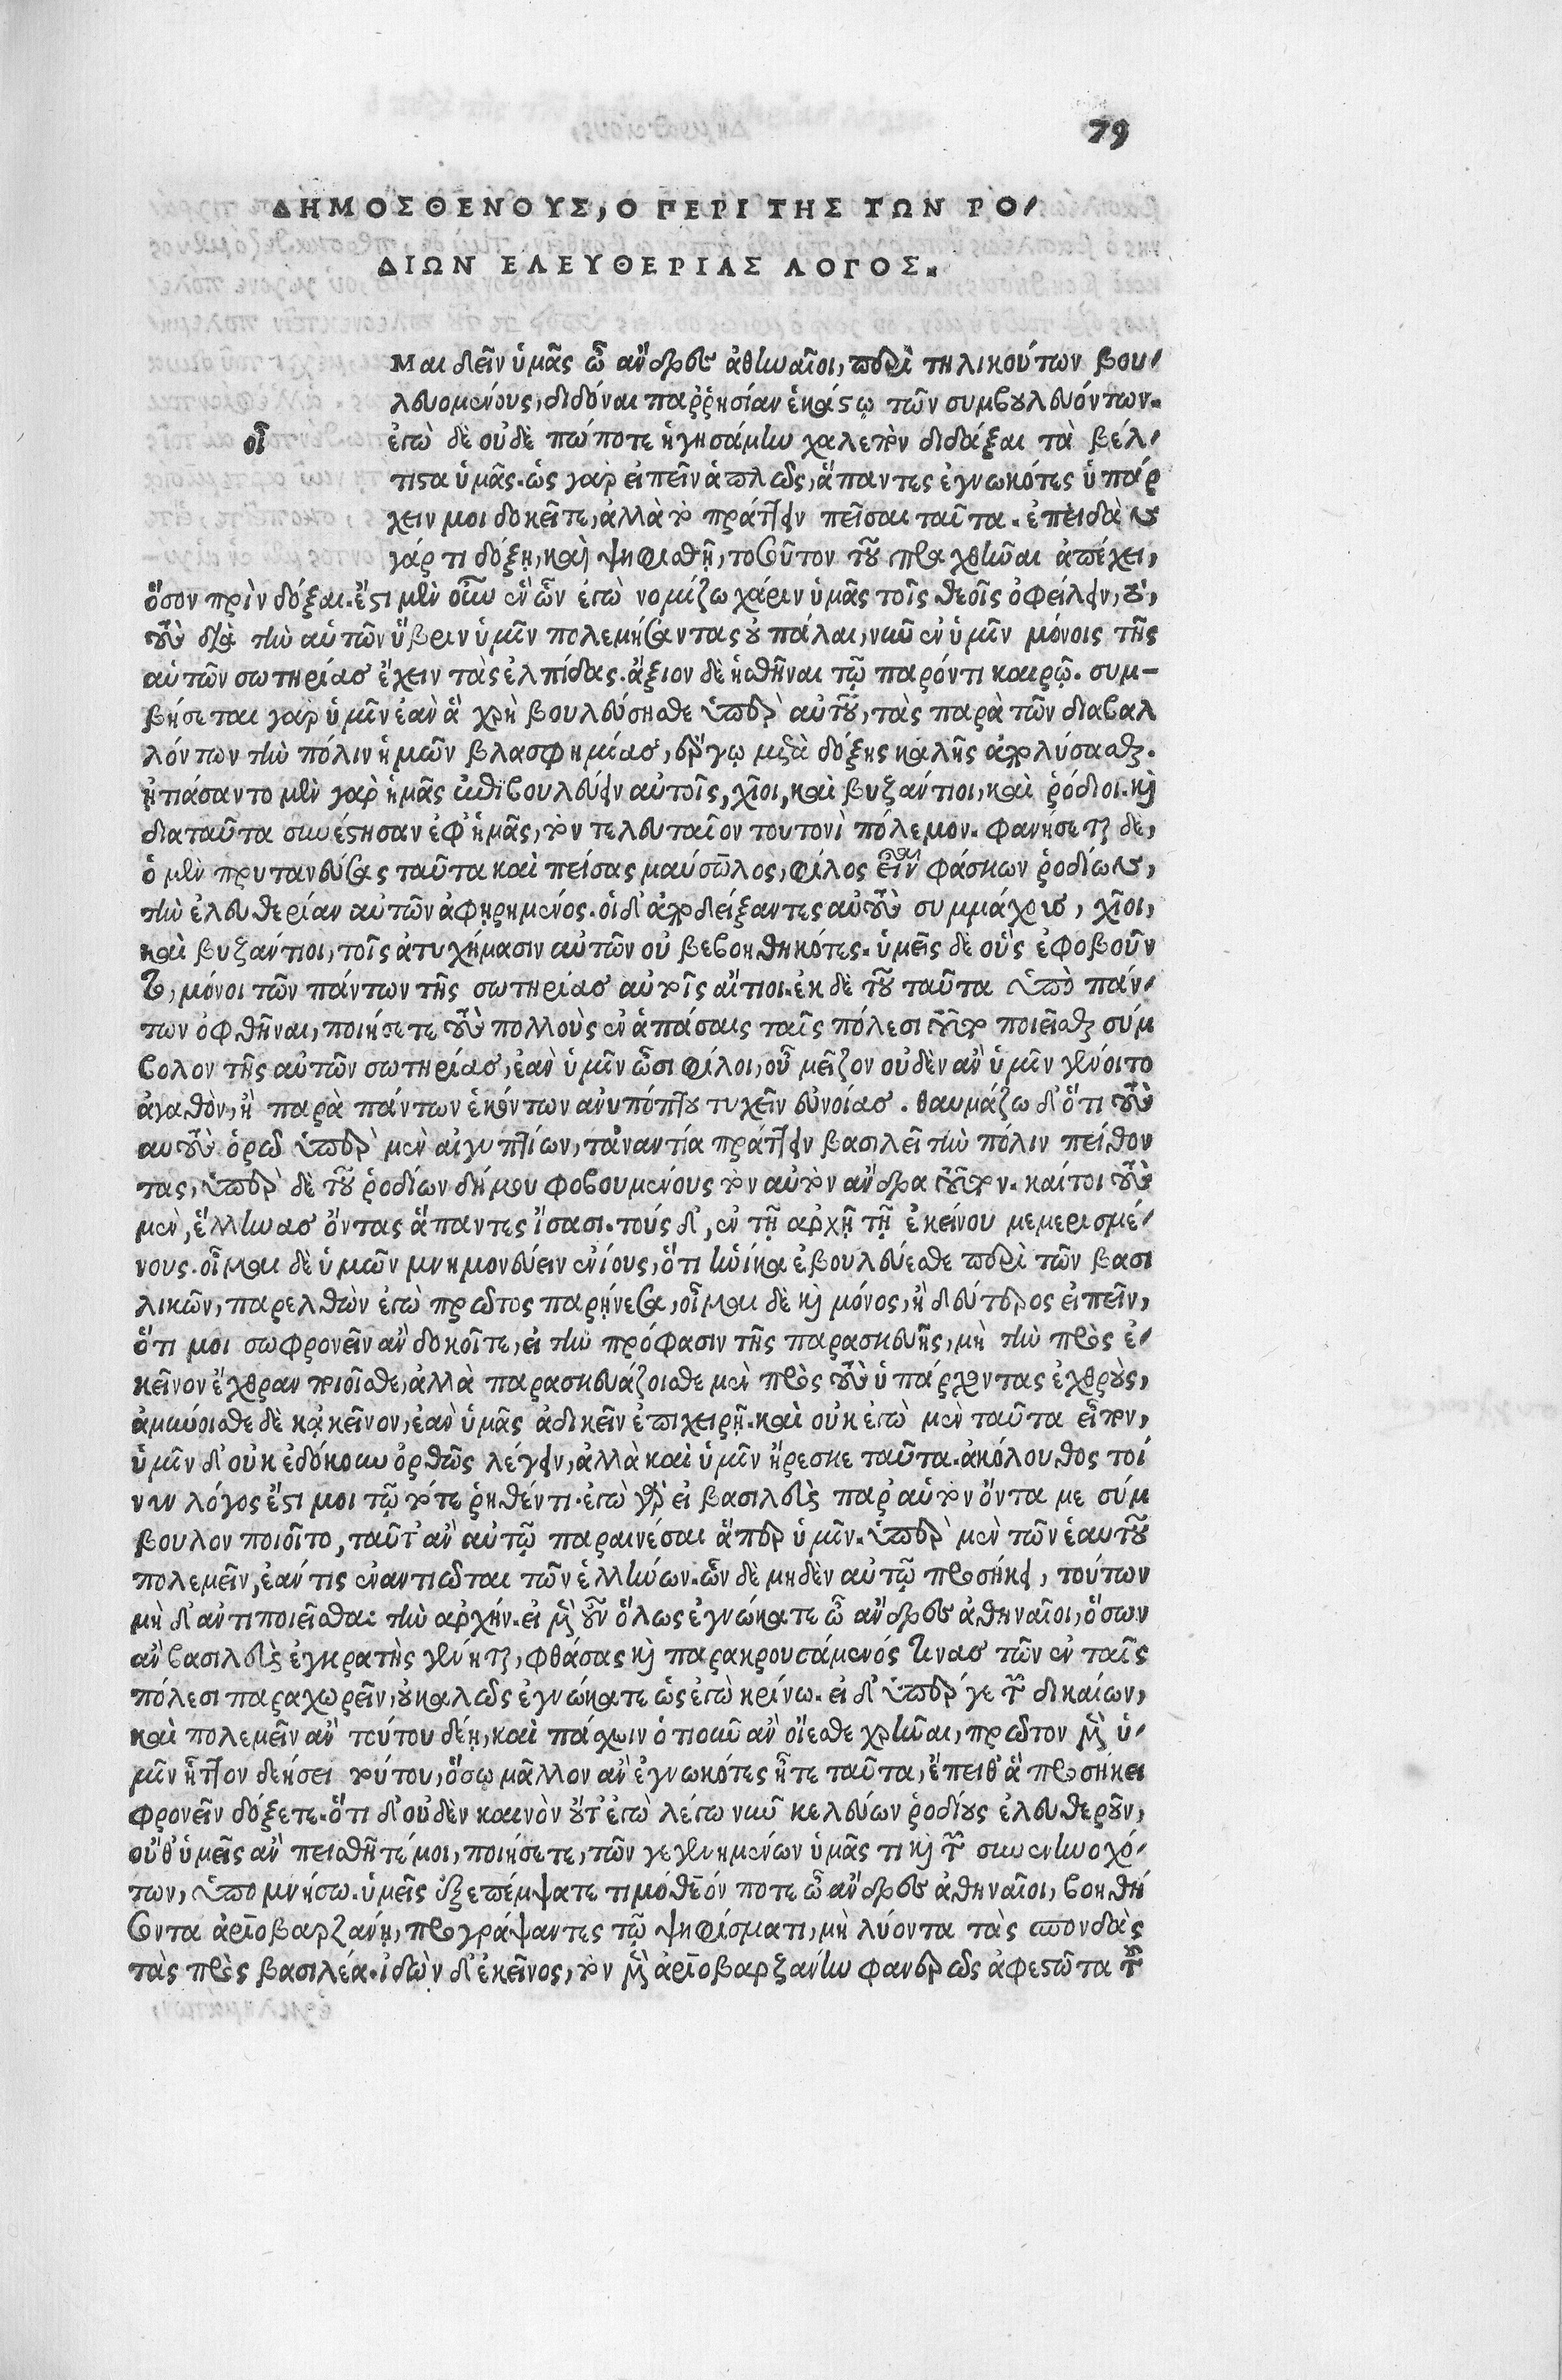 79
ΔΗΜΟΣΘΕΝΟΥΣ, Ο ΠΕΡΙ ΤΗΣ ΤΩΝ ΡΟ-
ΔΙΩΝ ΕΛΕΥΘΕΡΙΑΣ ΛΟΓΟΣ.
οἶ
Μαι δεῖν ὑμᾶς ὦ ἄνδρες ἀθηναῖοι, περὶ τηλικούτων βου-
λευομένους, διδόναι παῤῥησίαν ἑκάστῳ τῶν συμβουλευόντων.
ἐγὼ δὲ οὐδὲ πώποτε ἡγησάμην χαλεπὸν διδάξαι τὰ βέλ-
τιστα ὑμᾶς. ὡς γὰρ εἰπεῖν ἁπλῶς, ἅπαντες ἐγνωκότες ὑπάρ
χειν μοι δοκεῖτε, ἀλλὰ τὸ πράττειν πεῖσαι ταῦτα. ἐπειδὰν
γάρ τι δόξῃ, καὶ ψηφισθῇ, τοσοῦτον τοῦ πραχθῆναι ἀπέχει,
ὅσον πρὶν δόξαι. ἔστι μὲν οὖν ἓν ὧν ἐγὼ νομίζω χάριν ὑμᾶς τοῖς θεοῖς ὀφείλειν, τὸ,
τοὺς διὰ τὴν αὑτῶν ὕβριν ὑμῖν πολεμήσαντας οὐ πάλαι, νῦν ἐν ὑμῖν μόνοις τῆς
αὑτῶν σωτηρίας ἔχειν τὰς ἐλπίδας. ἄξιον δὲ ἡσθῆναι τῷ παρόντι καιρῷ. συμ-
βήσεται γὰρ ὑμῖν ἐὰν ἃ χρὴ βουλεύσησθε ὑπὲρ αὐτοῦ, τὰς παρὰ τῶν διαβαλ
λόντων τὴν πόλιν ἡμῶν βλασφημίας, ἔργῳ μετὰ δόξης καλῆς ἀπολύσασθαι.
ᾐτιάσαντο μὲν γὰρ ἡμᾶς ἐπιβουλεύειν αὐτοῖς, χῖοι, καὶ βυζάντιοι, καὶ ῥόδιοι. καὶ
διαταῦτα συνέστησαν ἐφ' ἡμᾶς, τὸν τελευταῖον τουτονὶ πόλεμον. φανήσεται δὲ,
ὁ μὲν πρυτανεύσας ταῦτα καὶ πείσας μαύσωλος, φίλος εἶναι φάσκων ῥοδίων,
τὴν ἐλευθερίαν αὐτῶν ἀφῃρημένος. οἱ δ' ἀποδείξαντες αὐτοὺς συμμάχους, χῖοι,
καὶ βυζάντιοι, τοῖς ἀτυχήμασιν αὐτῶν οὐ βεβοηθηκότες. ὑμεῖς δὲ οὓς ἐφοβοῦν
το, μόνοι τῶν πάντων τῆς σωτηρίας αὐτοῖς αἴτιοι. ἐκ δὲ τοῦ ταῦτα ὑπὸ πάν-
των ὀφθῆναι, ποιήσετε τοὺς πολλοὺς ἐν ἁπάσαις ταῖς πόλεσι τοῦτο ποιεῖσθαι σύμ
βολον τῆς αὑτῶν σωτηρίας, ἐὰν ὑμῖν ὦσι φίλοι, οὗ μεῖζον οὐδὲν ἂν ὑμῖν γένοιτο
ἀγαθὸν, ἢ παρὰ πάντων ἑκόντων ἀνυπόπτου τυχεῖν εὐνοίας. θαυμάζω δ' ὅτι τοὺς
αυτοὺς ὁρῶ ὑπὲρ μὲν αἰγυπτίων, τἀναντία πράττειν βασιλεῖ τὴν πόλιν πείθον
τας, ὑπὲρ δὲ τοῦ ῥοδίων δήμου φοβουμένους τὸν αὐτὸν ἄνδρα τοῦτον. καίτοι τοὺς
μὲν, ἕλληνας ὄντας ἅπαντες ἴσασι. τοὺς δ', ἐν τῇ ἀρχῇ τῇ ἐκείνου μεμερισμέ-
νους. οἶμαι δὲ ὑμῶν μνημονεύειν ἐνίους, ὅτι ἡνίκα ἐβουλεύεσθε περὶ τῶν βασι
λικῶν, παρελθὼν ἐγὼ πρῶτος παρῄνεσα, οἶμαι δὲ καὶ μόνος, ἢ δεύτερος εἰπεῖν,
ὅτι μοι σωφρονεῖν ἂν δοκοῖτε, εἰ τὴν πρόφασιν τῆς παρασκευῆς, μὴ τὴν πρὸς ἐ-
κεῖνον ἔχθραν ποιοῖσθε, ἀλλὰ παρασκευάζοισθε μὲν πρὸς τοὺς ὑπάρχοντας ἐχθροὺς,
ἀμύνοισθε δὲ κἀκεῖνον, ἐὰν ὑμᾶς ἀδικεῖν ἐπιχειρῇ. καὶ οὐκ ἐγὼ μὲν ταῦτα εἶπον,
ὑμῖν δ' οὐκ ἐδόκουν ὀρθῶς λέγειν, ἀλλὰ καὶ ὑμῖν ἤρεσκε ταῦτα. ἀκόλουθος τοί
νυν λόγος ἔστι μοι τῷ τότε ῥηθέντι. ἐγὼ γὰρ εἰ βασιλεὺς παρ' αὑτὸν ὄντα με σύμ
βουλον ποιοῖτο, ταῦτ' ἂν αὐτῷ παραινέσαι ἅπερ ὑμῖν. ὑπὲρ μὲν τῶν ἑαυτοῦ
πολεμεῖν, ἐάν τις ἐναντιῶται τῶν ἑλλήνων. ὧν δὲ μηδὲν αὐτῷ προσήκει, τούτων
μὴ δ' ἀντιποιεῖσθαι τὴν ἀρχήν. εἰ μὲν οὖν ὅλως ἐγνώκατε ὦ ἄνδρες ἀθηναῖοι, ὅσων
ἂν βασιλεὺς ἐγκρατὴς γένηται, φθάσας καὶ παρακρουσάμενός τινας τῶν ἐν ταῖς
πόλεσι παραχωρεῖν, οὐ καλῶς ἐγνώκατε ὡς ἐγὼ κρίνω. εἰ δ' ὑπέρ γε τῶν δικαίων,
καὶ πολεμεῖν ἂν τούτου δέῃ, καὶ πάσχειν ὁτιοῦν ἂν οἴεσθε χρῆναι, πρῶτον μὲν ὑ-
μῖν ἧττον δεήσει τούτου, ὅσῳ μᾶλλον ἂν ἐγνωκότες ἦτε ταῦτα, ἔπειθ' ἃ προσήκει
φρονεῖν δόξετε. ὅτι δ' οὐδὲν καινὸν οὔτ' ἐγὼ λέγω νῦν κελεύων ῥοδίους ἐλευθεροῦν,
οὔθ' ὑμεῖς ἂν πεισθῆτέ μοι, ποιήσετε, τῶν γεγενημένων ὑμᾶς τι καὶ τῶν συνενηνοχό-
των, ὑπομνήσω. ὑμεῖς ἐξεπέμψατε τιμόθεόν ποτε ὦ ἄνδρες ἀθηναῖοι, βοηθή
σοντα ἀριοβαρζάνῃ, προγράψαντες τῷ ψηφίσματι, μὴ λύοντα τὰς σπονδὰς
τὰς πρὸς βασιλέα. ἰδὼν δ' ἐκεῖνος, τὸν μὲν ἀριοβαρζάνην φανερῶς ἀφεστῶτα τοῦ